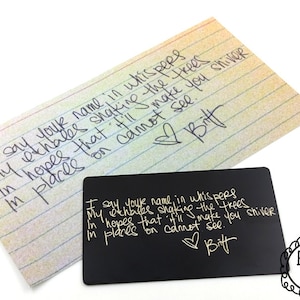 I say your name in whispers
My exhales shaking the trees
In hopes that it'll make you shiver
In places on cannot see
♡ Britt
I say your name in whispers
My exhales shaking the trees
In hopes that it'll make you shiver
In places on cannot see
♡ Britt